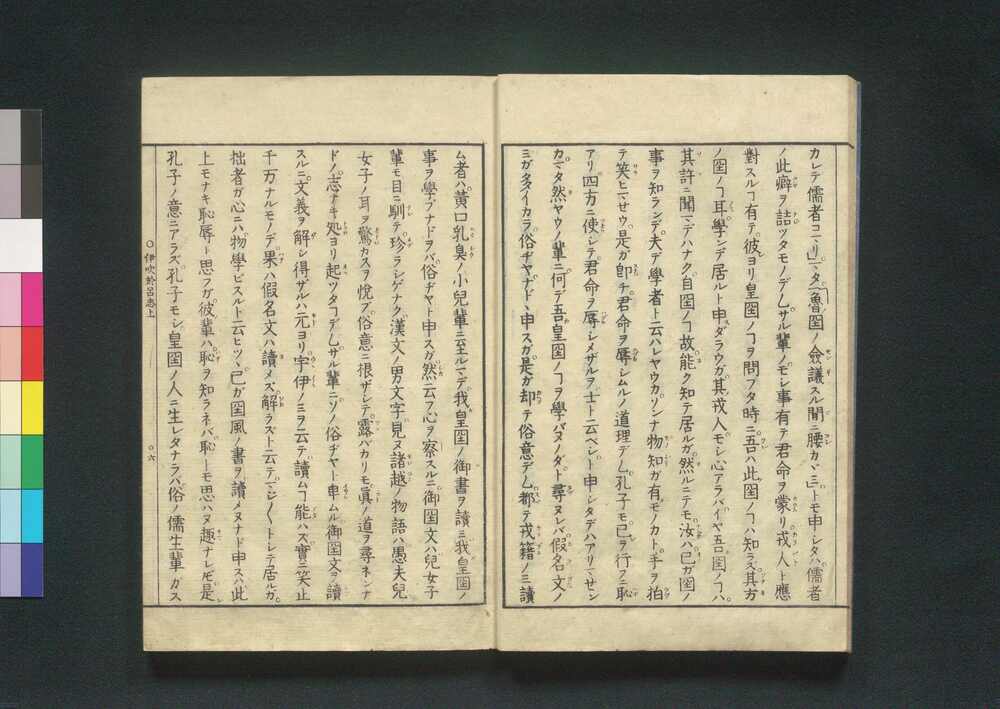 カレテ儒者コマリ」マタ「魯国ノ僉議スル聞ニ腰カヾミ」トモ申シタハ儒者
ノ此癖ヲ詰ツタモノデ𪜈サル輩ノモシ事有テ君命ヲ蒙リ戎人ト應
對スルヿ有テ彼ヨリ皇国ノヿヲ問フタ時ニ吾ハ此国ノヿハ知ラズ其方
ノ国ノヿ耳學ンデ居ルト申ダラウガ其戎人モシ心アラバイヤ吾国ノヿハ
其許ニ聞マデハナク自国ノヿ故能ク知テ居ルガ然ルニテモ汝ハ己ガ国ノ
事ヲ知ランデ夫デ學者ト云ハレヤウカソンナ物知ガ有モノカト手ヲ拍
テ笑ヒマセウ是ガ即チ君命ヲ辱シムルノ道理デ孔子モ己ヲ行フニ恥
アリ四方ニ使シテ君命ヲ辱シメザルヲ士ト云ベシト申シタデハアリマセン
カマタ然ヤウノ輩ニ何デ吾皇国ノヿヲ學バヌノダト尋ヌレバ假名文ノ
ミガタタイカラ俗ヂヤナドヽ申スガ是ガ却テ俗意デ都テ戎籍ノミ讀
ム者ハ黄口乳臭ノ小兒輩ニ至ルマデ我皇国ノ御書ヲ讀ミ我皇国ノ
事ヲ學ブナドヲバ俗ヂヤト申スガ然云フ心ヲ察スルニ御国文ハ兒女子
輩モ目ニ馴テ珍ラシゲナク漢文ノ男文字見ヌ諸越ノ物語ハ愚夫兒
女子ノ耳ヲ驚カスヲ悦ブ俗意ニ根ザシテ露バカリモ眞ノ道ヲ尋ネンナ
ドノ志ナキ処ヨリ起ツタヿデサル輩ニソノ俗ヂヤト申ムル御国文ヲ讀
スルニ文義ヲ解シ得ザルハ元ヨリ字伊ノミヲ云テ讀ムヿ能ハズ實ニ笑止
千万ナルモノデ果ハ假名文ハ讀メズ解ラスト云テマジ〱トシテ居ルガ
拙者ガ心ニハ物學ビスルト云ヒツヽ己ガ国風ノ書ヲ讀メヌナド申スハ此
上モナキ恥辱ト思フガ彼輩ハ恥ヲ知ラネバ恥トモ思ハヌ趣ナレド是
孔子ノ意ニアラズ孔子モシ皇国ノ人ニ生レタナラバ俗ノ儒生輩カス
○伊吹於呂志上
○六